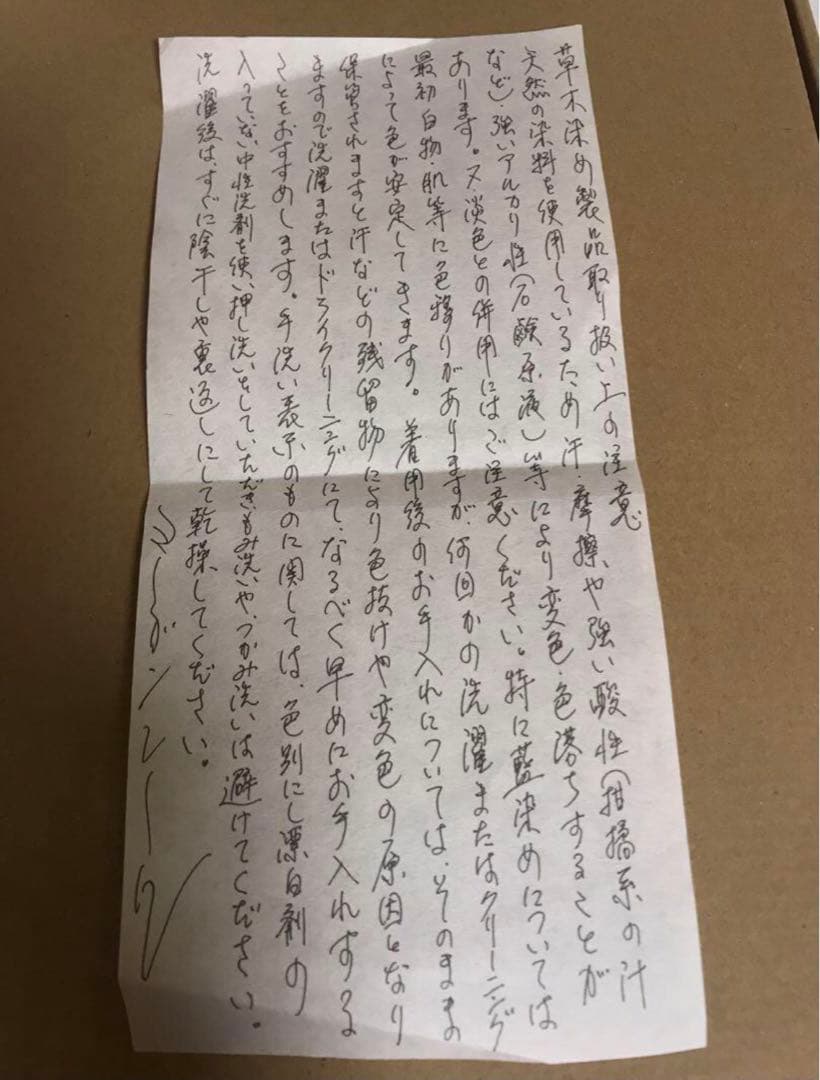 草木染め製品取り扱い上の注意
天然の染料を使用しているため汗・摩擦や強い酸性(柑橘系の汁
など)・強いアルカリ性(石鹸系液)等により変色・色落ちすることが
あります。又、淡色との併用にはご注意ください。特に藍染めについては
最初白物・肌等に色移りがありますが、何回かの洗濯またはクリーニング
によって色が安定してきます。着用後のお手入れについては、そのまま
保管されますと汗などの残留物により色抜けや変色の原因となり
ますので洗濯またはドライクリーニングにて、なるべく早めにお手入れする
ことをおすすめします。手洗い表示のものに関しては、色別にし漂白剤の
入っていない中性洗剤を使い押し洗いをしていただきもみ洗いや、つかみ洗いは避けてください。
洗濯後は、すぐに陰干しや裏返しにして乾燥してください。